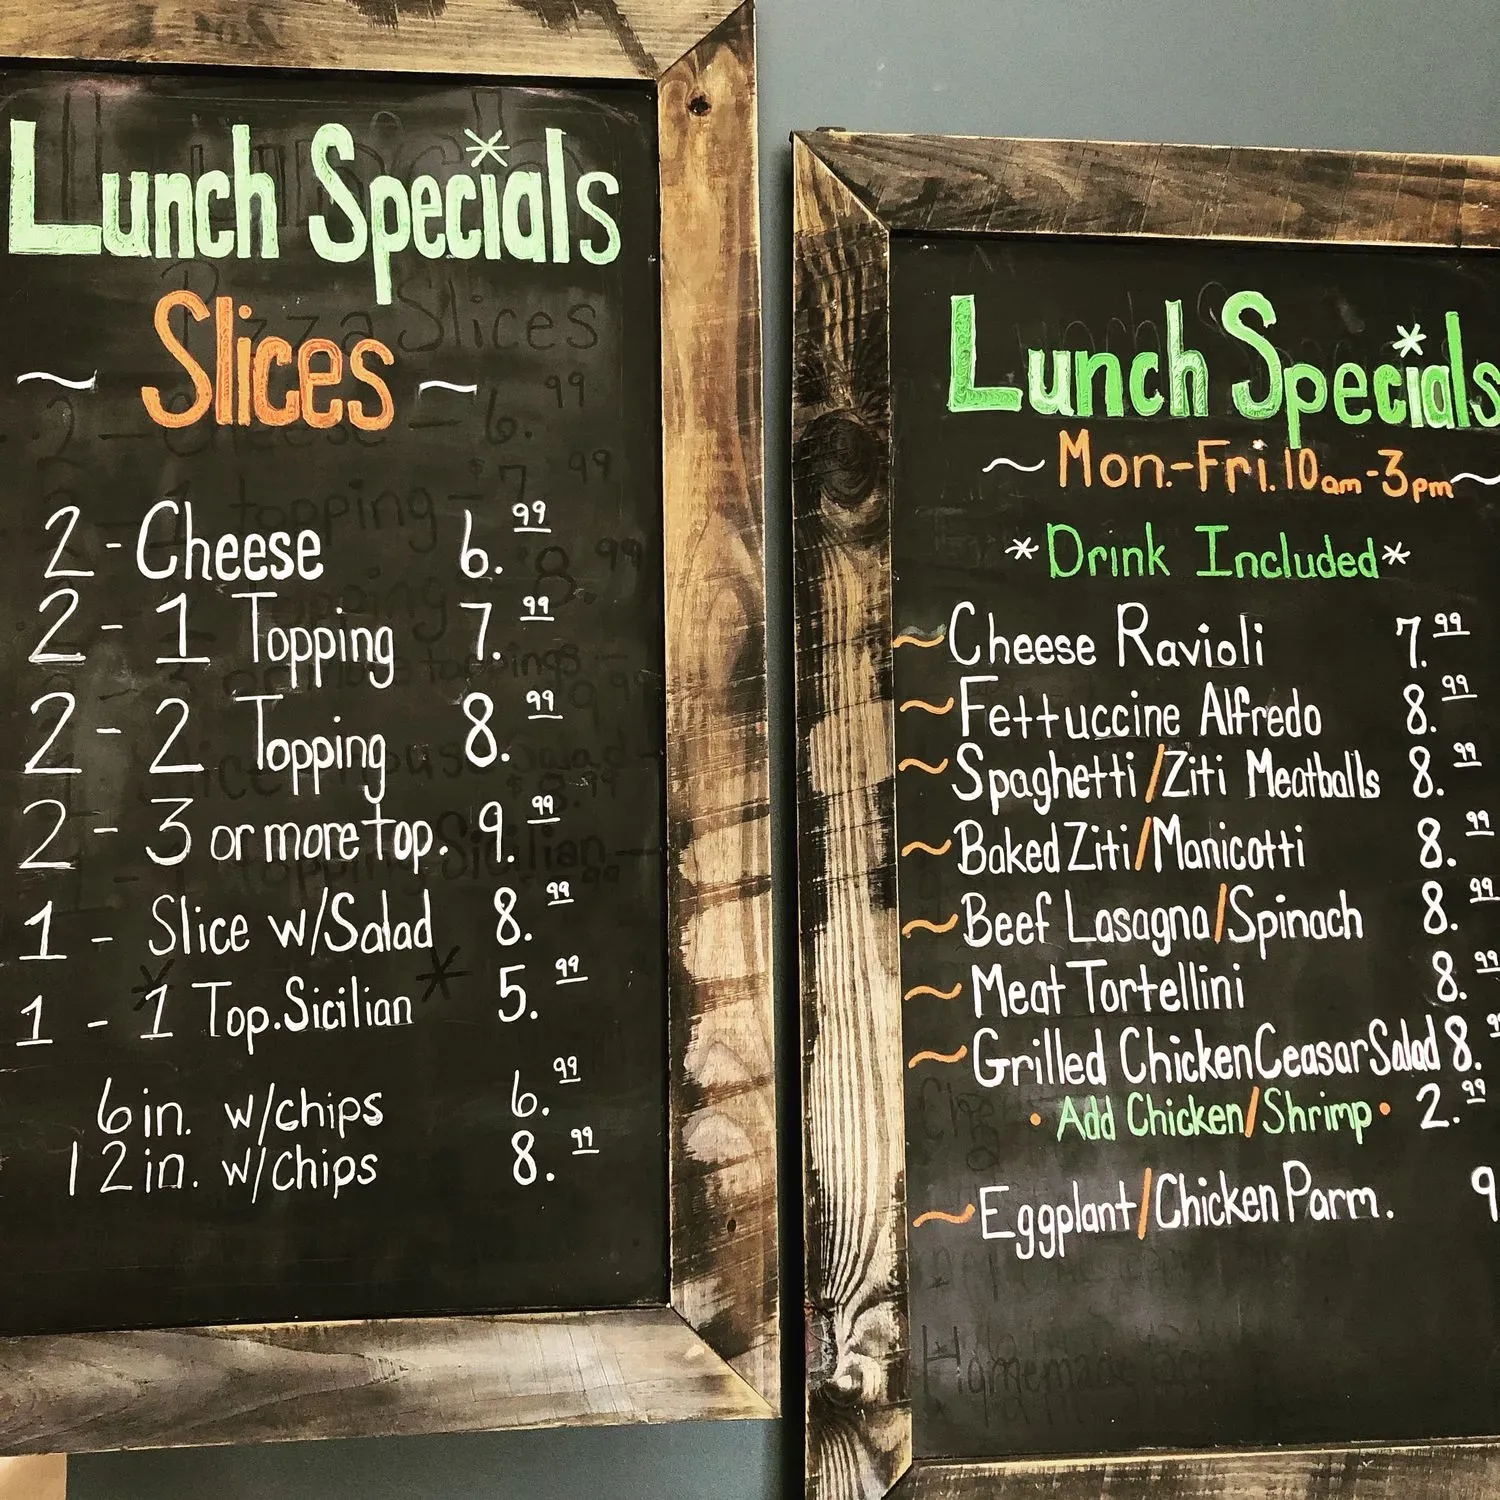 Lunch Specials
~ Slices ~
2 - Cheese 6.99
2 - 1 Topping 7.99
2 - 2 Topping 8.99
2 - 3 or more top. 9.99
1 - Slice w/Salad 8.99
1 - 1 Top. Sicilian 5.99
6in. w/chips 6.99
12in. w/chips 8.99
Lunch Specials
~ Mon.-Fri. 10am-3pm ~
*Drink Included*
~ Cheese Ravioli 7.99
~ Fettuccine Alfredo 8.99
~ Spaghetti/Ziti Meatballs 8.99
~ Baked Ziti/Manicotti 8.99
~ Beef Lasagna/Spinach 8.99
~ Meat Tortellini 8.99
~ Grilled Chicken Ceasar Salad 8.9
• Add Chicken/Shrimp • 2.99
~ Eggplant/Chicken Parm. 9